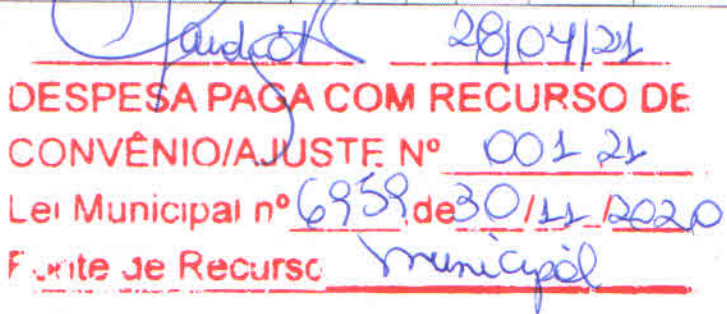 28/04/21
DESPESA PAGA COM RECURSO DE
CONVÊNIO/AJUSTE Nº 001 21
Lei Municipal nº 6959 de 30/11/2020
Fonte de Recurso Municipal